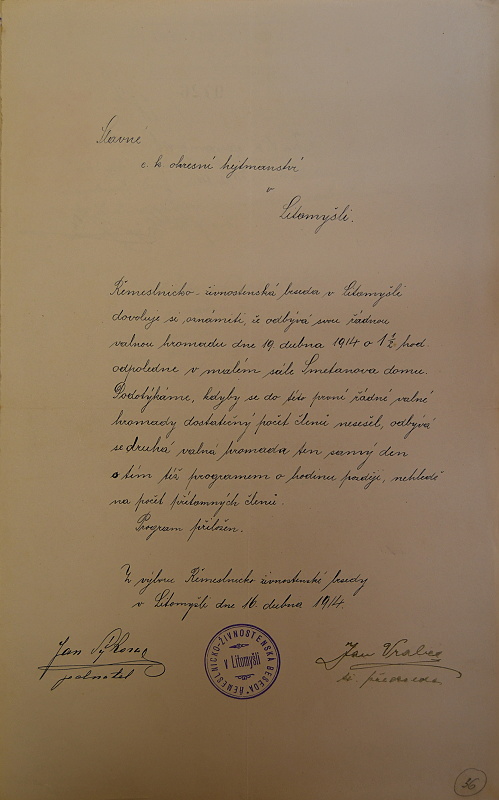 Slavné
c. k. okresní hejtmanství
v
Litomyšli.
Řemeslnicko-živnostenská beseda v Litomyšli
dovoluje si oznámiti, že odbývá svou řádnou
valnou hromadu dne 19. dubna 1914 o 1½ hod
odpoledne v malém sále Smetanova domu.
Podotýkáme, kdyby se do této první řádné valné
hromady dostatečný počet členů nesešel, odbývá
se druhá valná hromada ten samý den
s tím též programem o hodinu později, nehledě
na počet přítomných členů.
Program přiložen.
Z výboru Řemeslnicko živnostenské besedy
v Litomyšli dne 16. dubna 1914.
Jan
jednatel
ŘEMESLNICKO-ŽIVNOSTENSKÁ BESEDA
v Litomyšli
Jan Vrabec
předseda
36